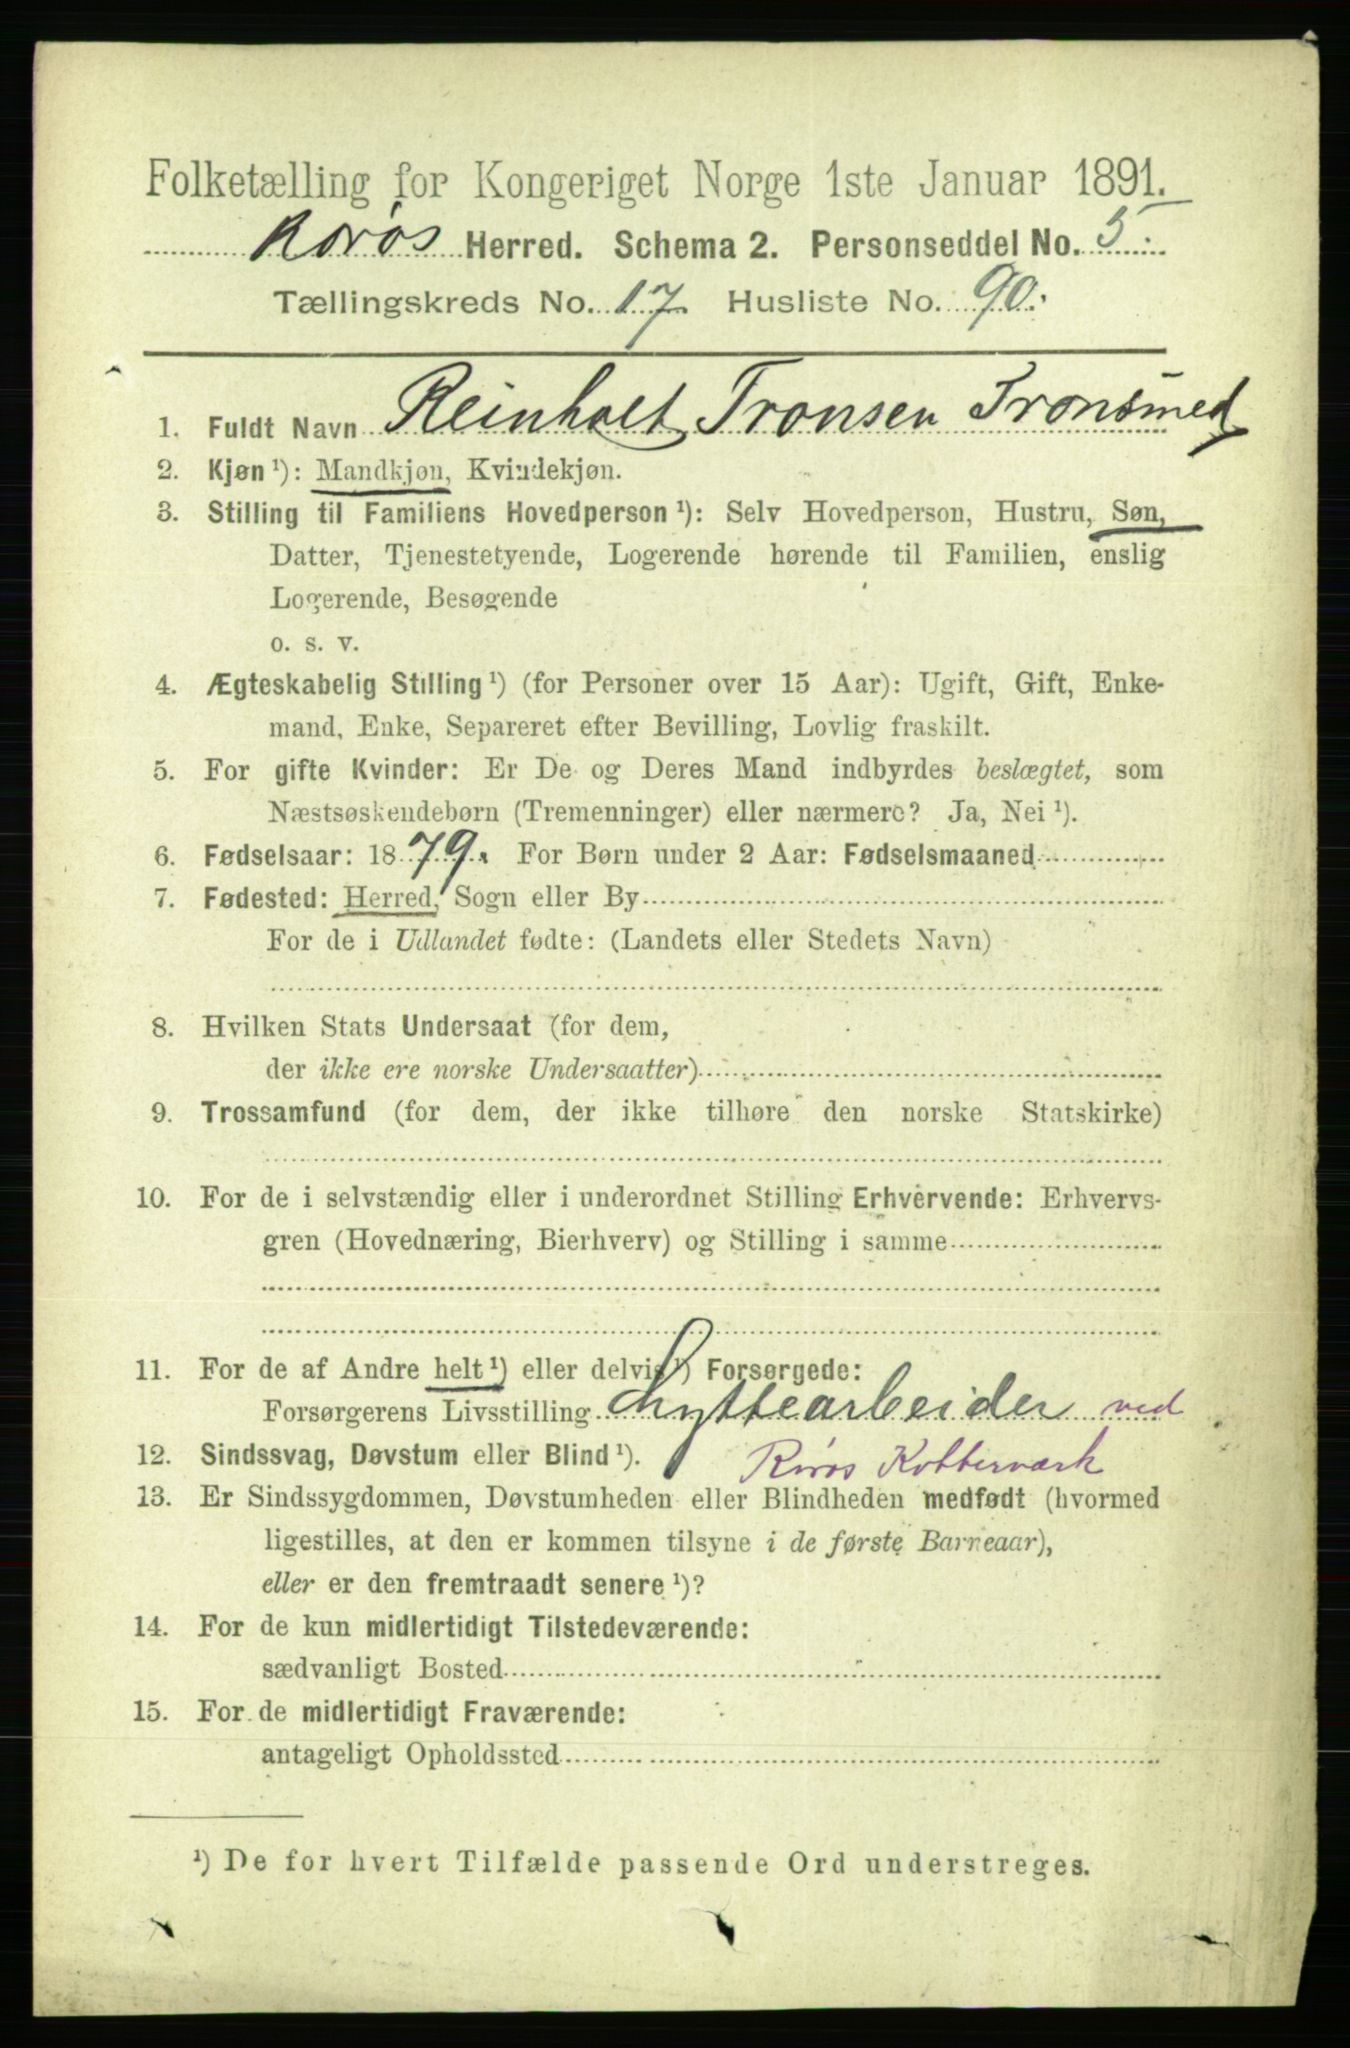 Folketælling for Kongeriget Norge 1ste Januar 1891.
Røros Herred. Schema 2. Personseddel No. 5.
Tællingskreds No. 17 Husliste No. 90.
1. Fuldt Navn Reinholt Tronsen Tronsmed
2. Kjøn ¹): Mandkjøn, Kvindekjøn.
3. Stilling til Familiens Hovedperson ¹): Selv Hovedperson, Hustru, Søn,
Datter, Tjenestetyende, Logerende hørende til Familien, enslig
Logerende, Besøgende
o. s. v.
4. Ægteskabelig Stilling ¹) (for Personer over 15 Aar): Ugift, Gift, Enke-
mand, Enke, Separeret efter Bevilling, Lovlig fraskilt.
5. For gifte Kvinder: Er De og Deres Mand indbyrdes beslægtet, som
Næstsøskendebørn (Tremenninger) eller nærmere? Ja, Nei ¹).
6. Fødselsaar: 1879. For Børn under 2 Aar: Fødselsmaaned
7. Fødested: Herred, Sogn eller By
For de i Udlandet fødte: (Landets eller Stedets Navn)
8. Hvilken Stats Undersaat (for dem,
der ikke ere norske Undersaatter)
9. Trossamfund (for dem, der ikke tilhøre den norske Statskirke)
10. For de i selvstændig eller i underordnet Stilling Erhvervende: Erhvervs-
gren (Hovednæring, Bierhverv) og Stilling i samme
11. For de af Andre helt ¹) eller delvis ¹) Forsørgede:
Forsørgerens Livsstilling Hyttearbeider ved
12. Sindssvag, Døvstum eller Blind ¹). Røros Kobberværk
13. Er Sindssygdommen, Døvstumheden eller Blindheden medfødt (hvormed
ligestilles, at den er kommen tilsyne i de første Barneaar),
eller er den fremtraadt senere ¹)?
14. For de kun midlertidigt Tilstedeværende:
sædvanligt Bosted
15. For de midlertidigt Fraværende:
antageligt Opholdssted
¹) De for hvert Tilfælde passende Ord understreges.